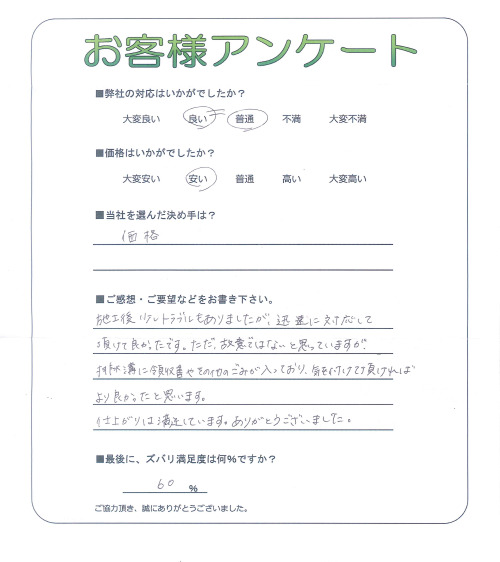 お客様アンケート
■弊社の対応はいかがでしたか？
大変良い 良い 普通 不満 大変不満
■価格はいかがでしたか？
大変安い 安い 普通 高い 大変高い
■当社を選んだ決め手は？
価格
■ご感想・ご要望などをお書き下さい。
施工後少しトラブルもありましたが、迅速に対応して
頂けて良かったです。ただ、故意ではないと思っていますが、
排水溝に領収書やその他のごみが入っており、気をつけて頂ければ
より良かったと思います。
仕上がりは満足しています。ありがとうございました。
■最後に、ズバリ満足度は何％ですか？
60 ％
ご協力頂き、誠にありがとうございました。